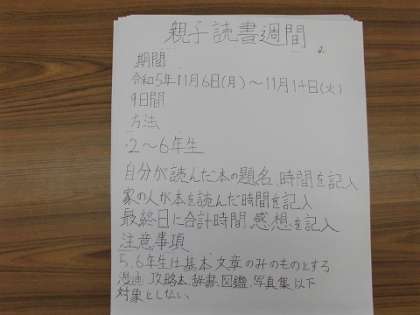 親子読書週間
期間
令和5年11月6日(月)～11月14日(火)
9日間
方法
・2～6年生
自分が読んだ本の題名、時間を記入
家の人が本を読んだ時間を記入
最終日に合計時間、感想を記入
注意事項
5、6年生は基本文章のみのものとする
漫画、攻略本、辞書、図鑑、写真集、以下
対象としない